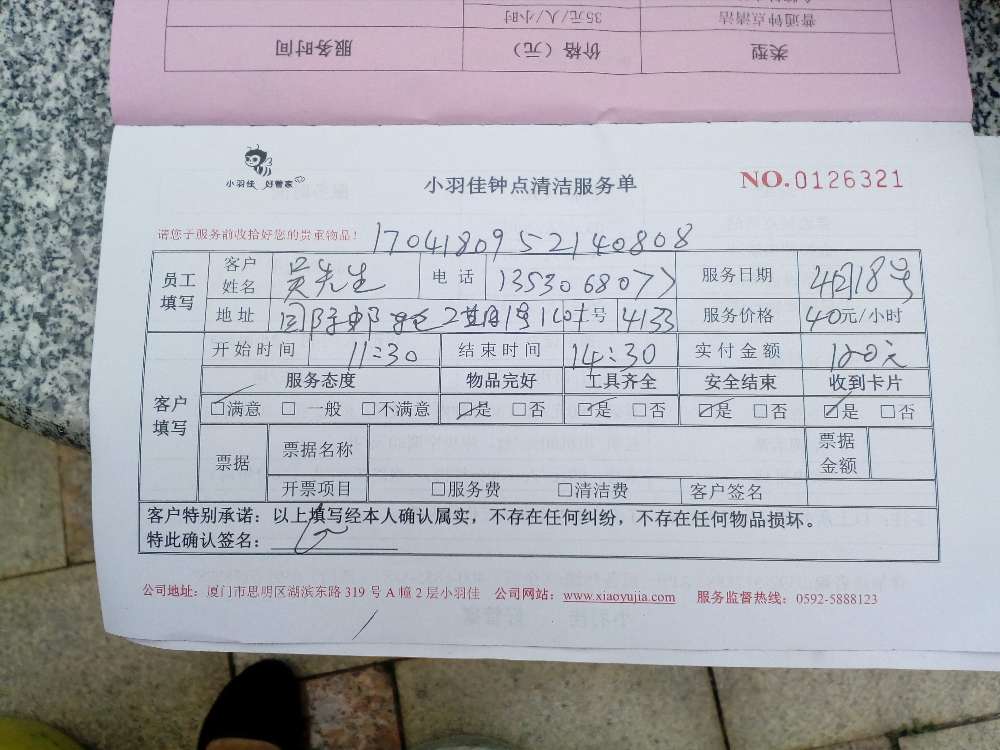 普通钟点清洁 35元/人/小时
类型 价格（元） 服务时间
小羽佳 好管家
小羽佳钟点清洁服务单
NO.0126321
请您于服务前收拾好您的贵重物品！
1704180952140808
员工填写 客户姓名 吴先生 电话 1353068077 服务日期 4月18号
地址 国际邮轮2期1号 号 4133 服务价格 40元/小时
客户填写 开始时间 11:30 结束时间 14:30 实付金额 120元
服务态度 物品完好 工具齐全 安全结束 收到卡片
☑满意 □ 一般 □不满意 ☑是 □否 ☑是 □否 ☑是 □否 ☑是 □否
票据 票据名称 票据金额
开票项目 □服务费 □清洁费 客户签名
客户特别承诺：以上填写经本人确认属实，不存在任何纠纷，不存在任何物品损坏。
特此确认签名：
公司地址：厦门市思明区湖滨东路 319 号 A 幢 2 层小羽佳 公司网站：www.xiaoyujia.com 服务监督热线：0592-5888123